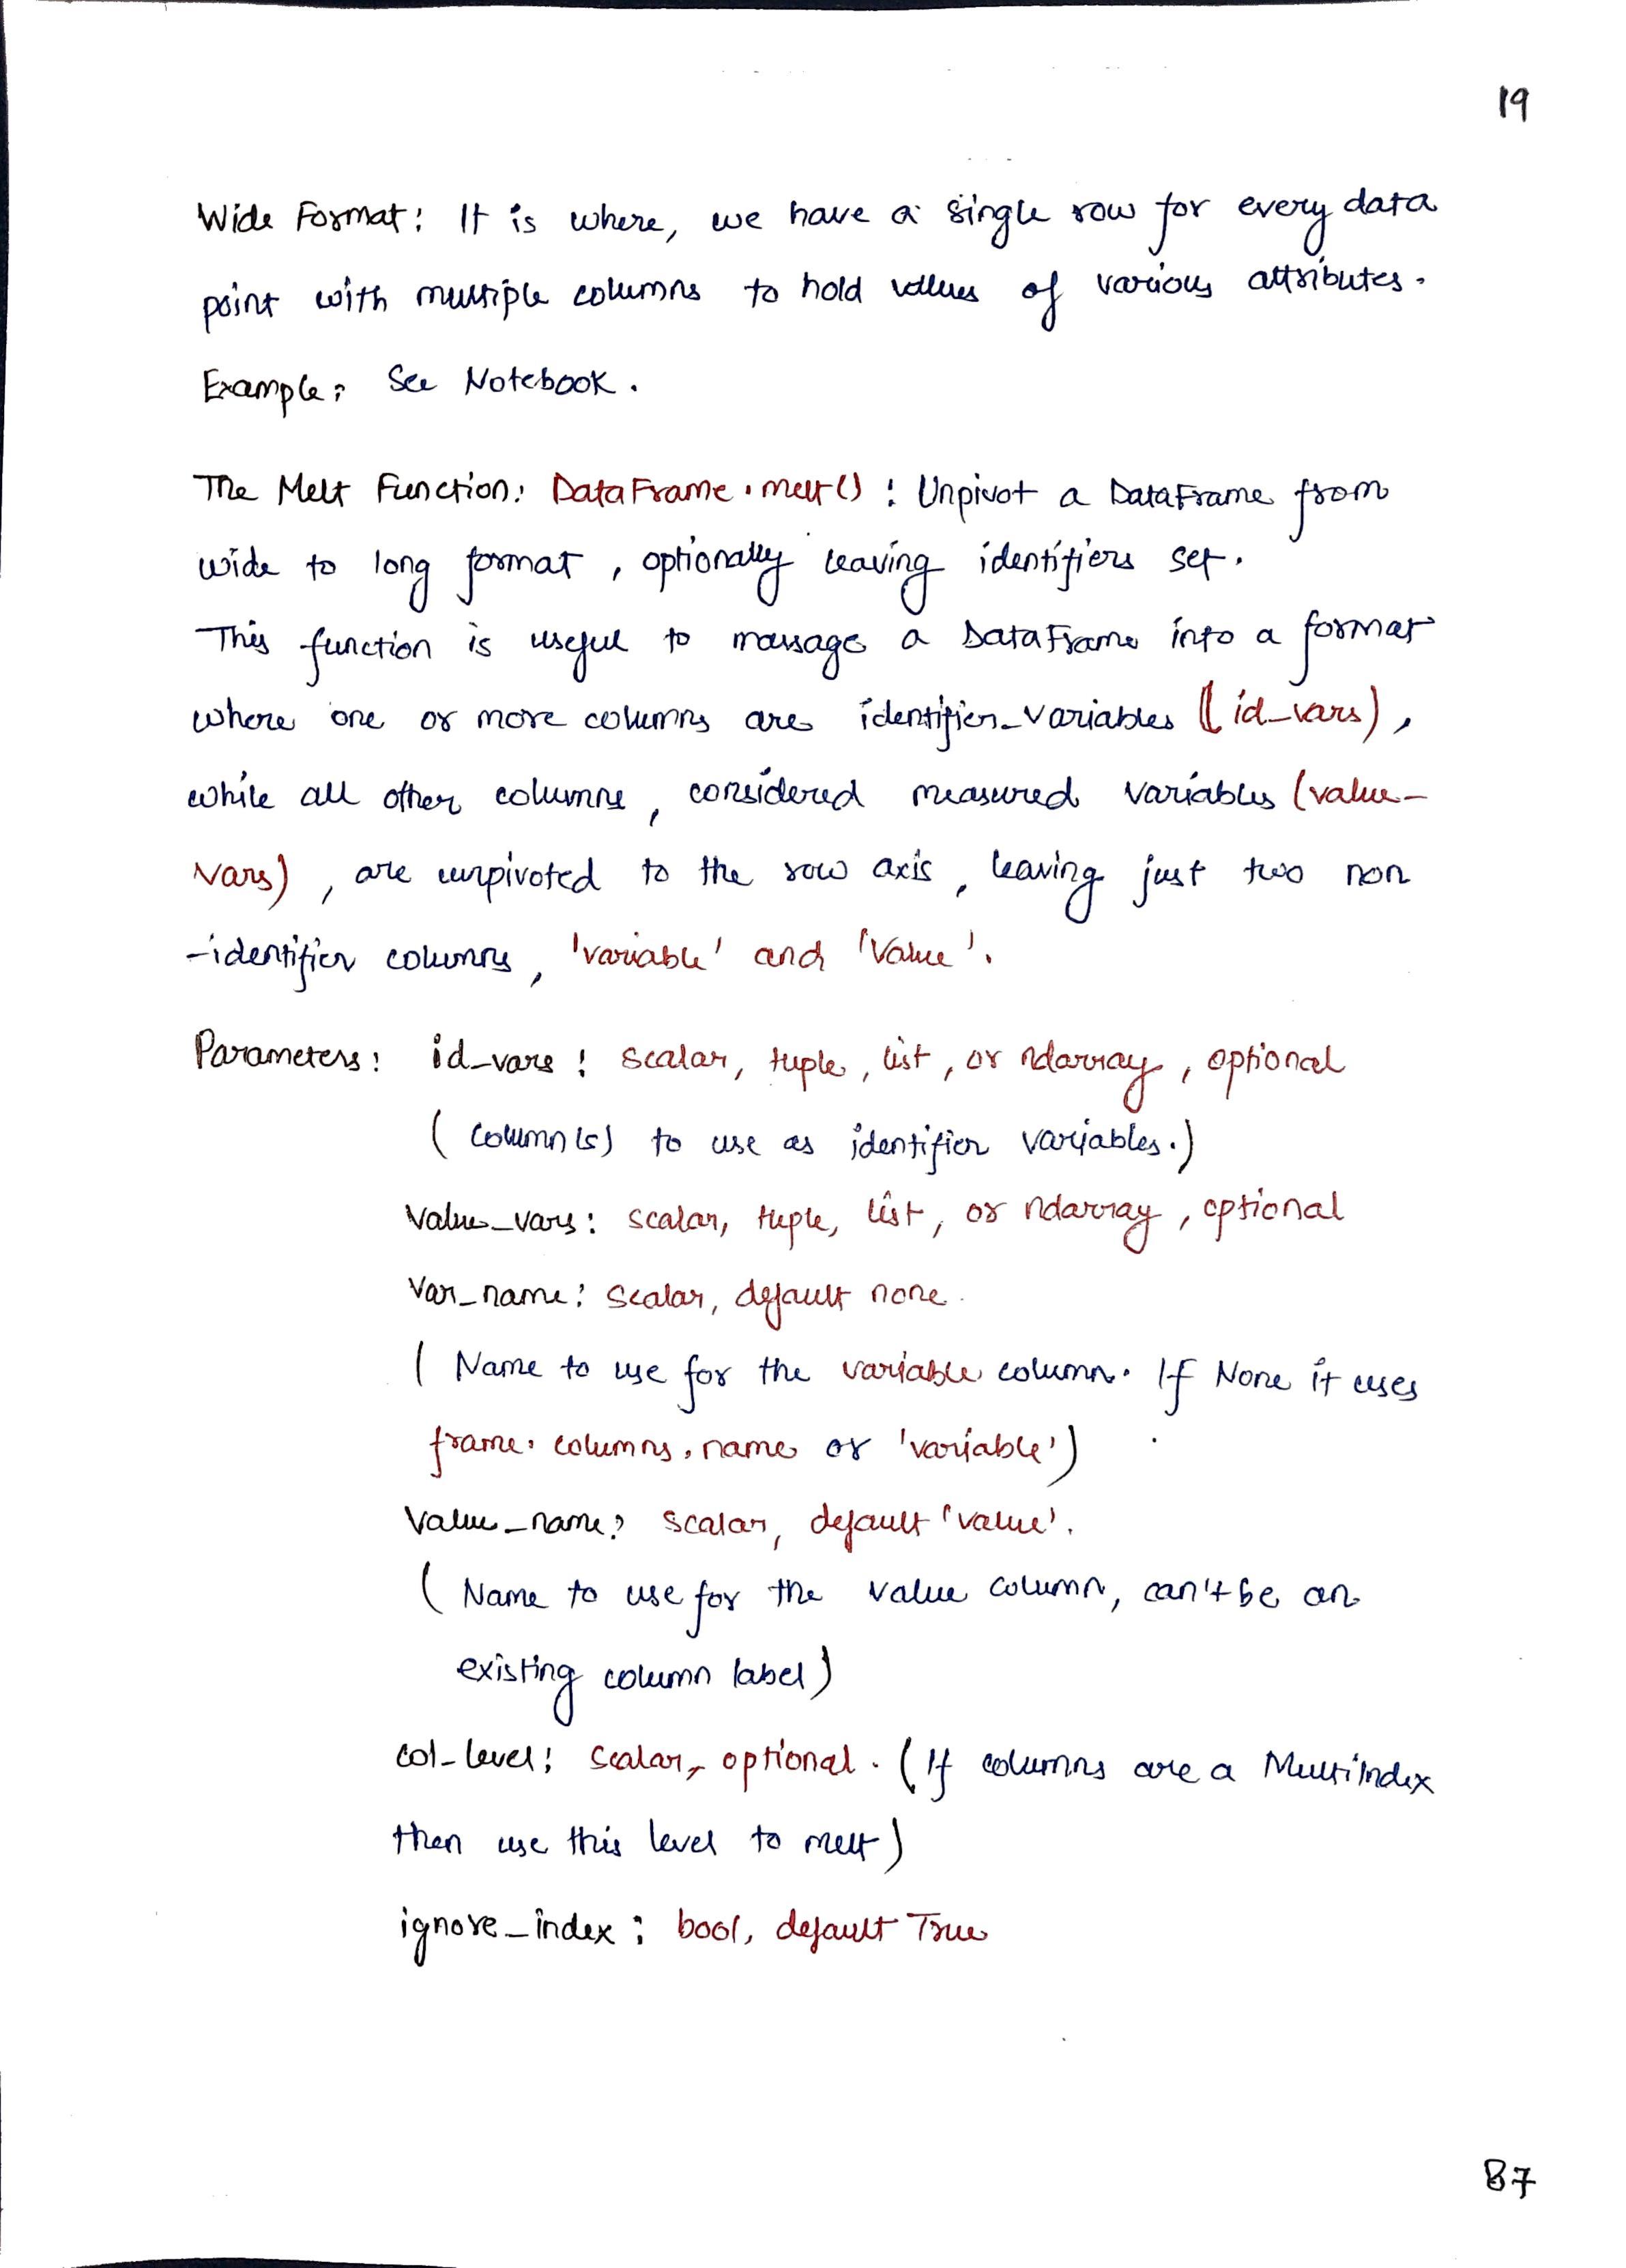 19
Wide Format: It is where, we have a single row for every data
point with multiple columns to hold values of various attributes.
Example: See Notebook.
The Melt Function: DataFrame.melt() : Unpivot a DataFrame from
wide to long format, optionally leaving identifiers set.
This function is useful to massage a DataFrame into a format
where one or more columns are identifier_variables (id_vars),
while all other columns, considered measured variables (value_
vars), are unpivoted to the row axis, leaving just two non
-identifier columns, 'variable' and 'value'.
Parameters: id_vars : scalar, tuple, list, or ndarray, optional
(column(s) to use as identifier variables.)
Value_vars: scalar, tuple, list, or ndarray, optional
Var_name: scalar, default none.
( Name to use for the variable column. If None it uses
frame.columns.name or 'variable')
Value_name: scalar, default 'value'.
( Name to use for the value column, can't be an
existing column label)
col_level: scalar, optional. (If columns are a MultiIndex
then use this level to melt)
ignore_index: bool, default True
87